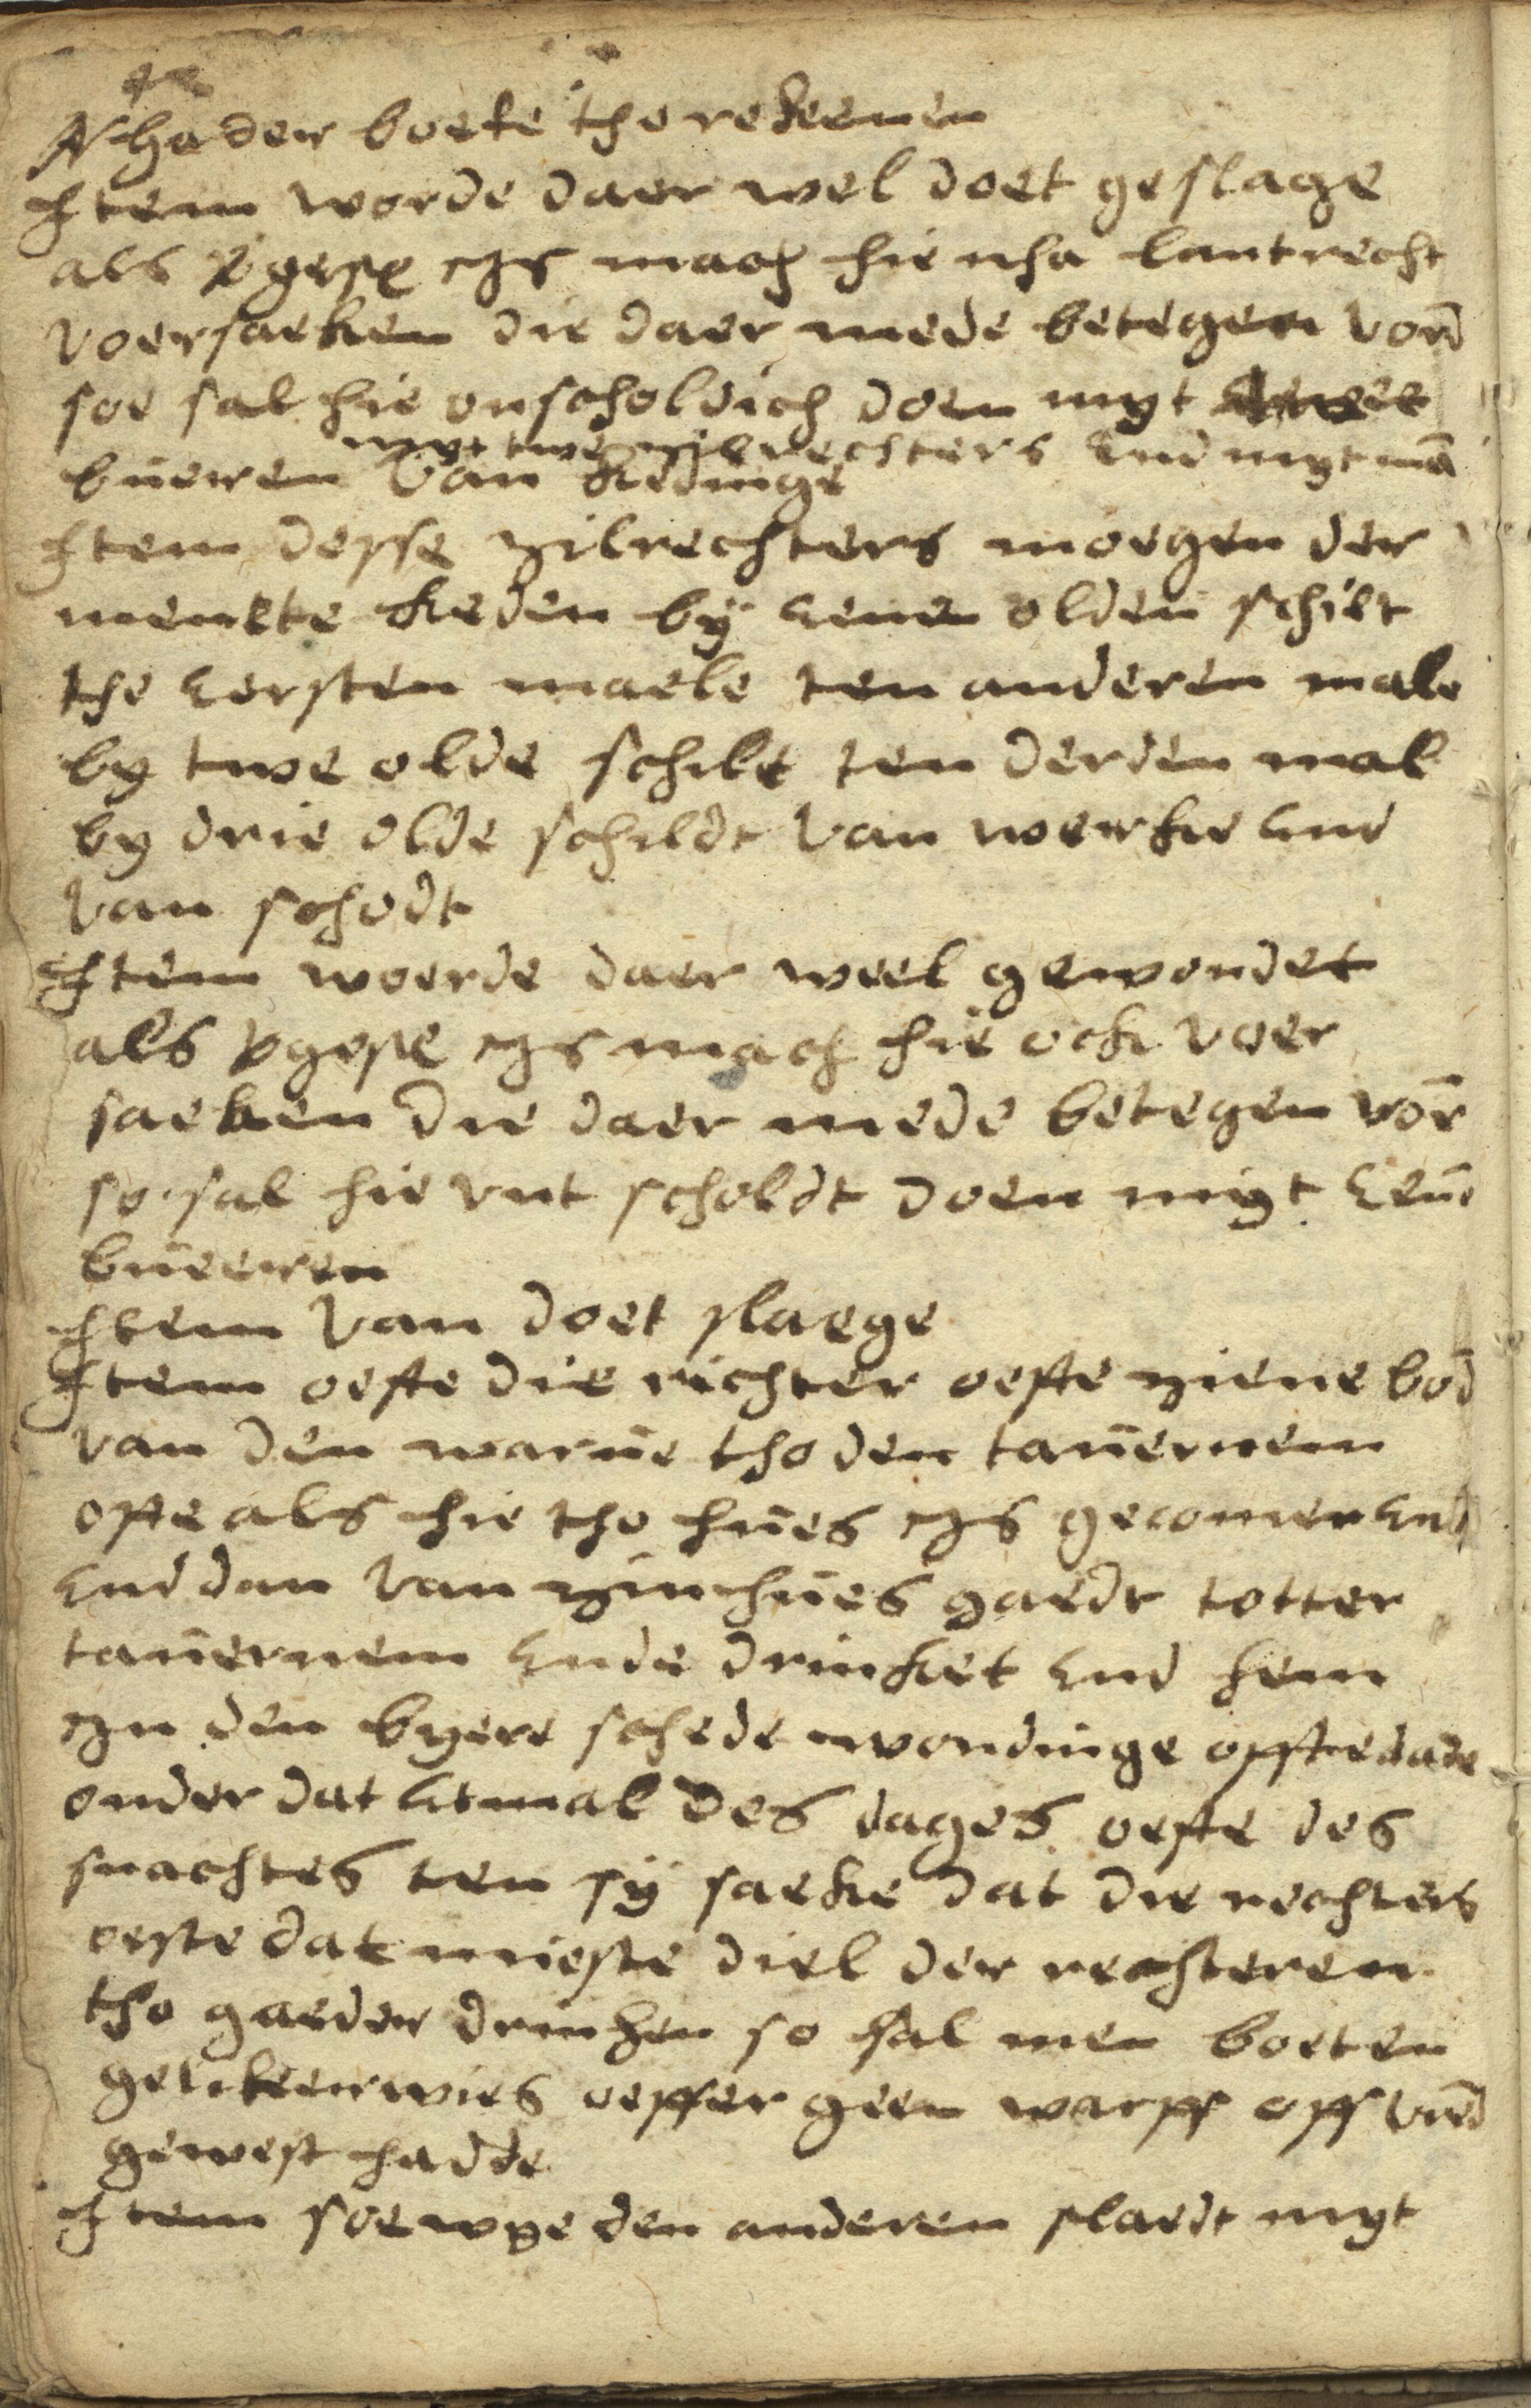 Nha der boete tho rekenen
Item worde daer wel doet geslage
als vgesz ys mach hie nha lantrecht
voersaeken die daer mede betegen vord
soe sal hie onscholdich doen myt
myt twe zilrechters end myt mā
bueren van Kedinge
Item desse zilrechters moegen der
menkte keden by eenen olden schilt
tho eersten maele ten anderen male
by twe olde schilt ten derden mal
by drie olde schildt van werke end
van schodt
Item woerde daer weel gewondet
als vgesz ys mach hie ock voer
saeken die daer mede betegen vor
so sal hie vnt scholdt doen myt
bueeren
Item van doet slaege
Item oefte die richter oefte ziene bod
van den warue tho den tauernen
ofte als hie tho hues ys gecomen end
end dan van zin hues gaedt totter
tauernen ende drinket end hem
yn den byere schede wondinge offte dade
onder dat etmal des dages oefte des
snachtes ten sy saeke dat die rechters
oefte dat mieste diel der rechteren
tho gaeder drinken so sal men boeten
gelikerwies oeffer geen warff off vred
gewest hadde
Item soe wye den anderen slaedt myt